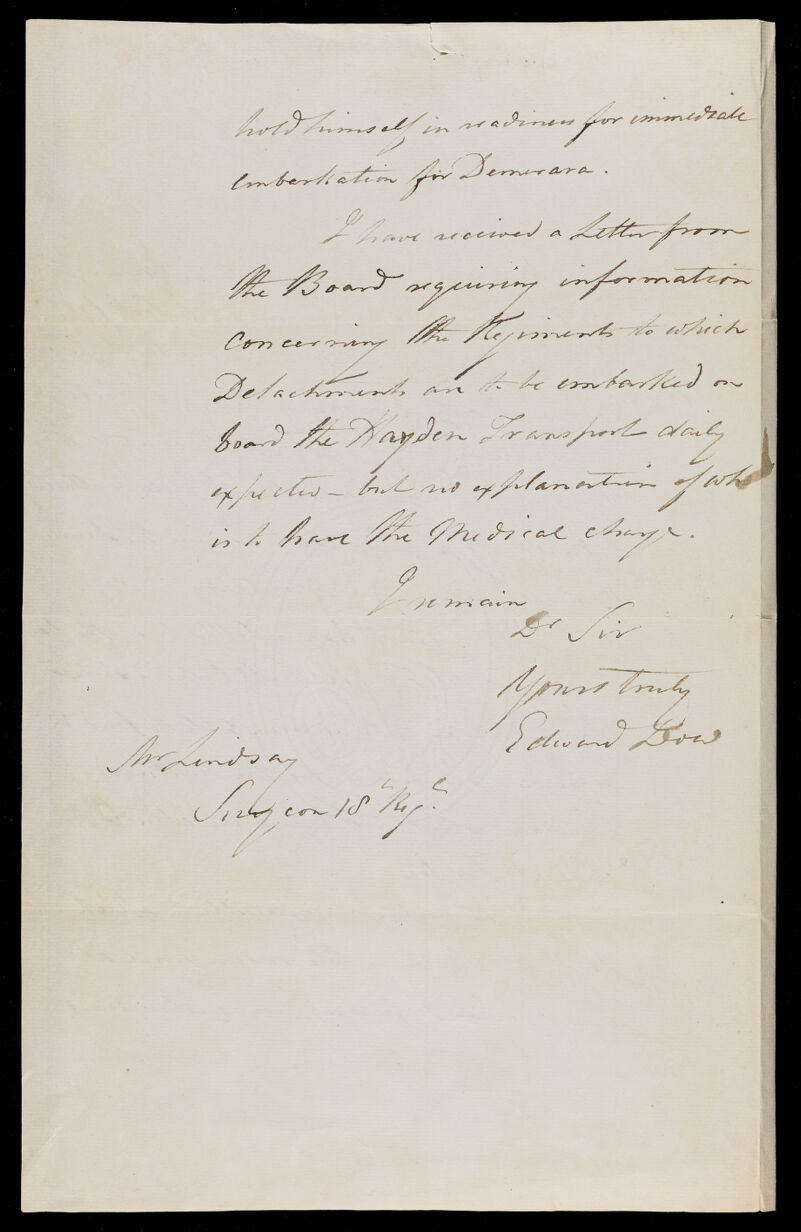 hold himself in readiness for immediate
embarkation for Demerara.
I have received a Letter from
the Board requiring information
concerning the Regiments to which
Detachments are to be embarked on
board the Hayden Transport daily
expected – but no explanation of who
is to have the Medical charge.
I remain
Dr Sir
Yours truly
Edward Dow
Mr Lindsay
Surgeon 18th Regt.